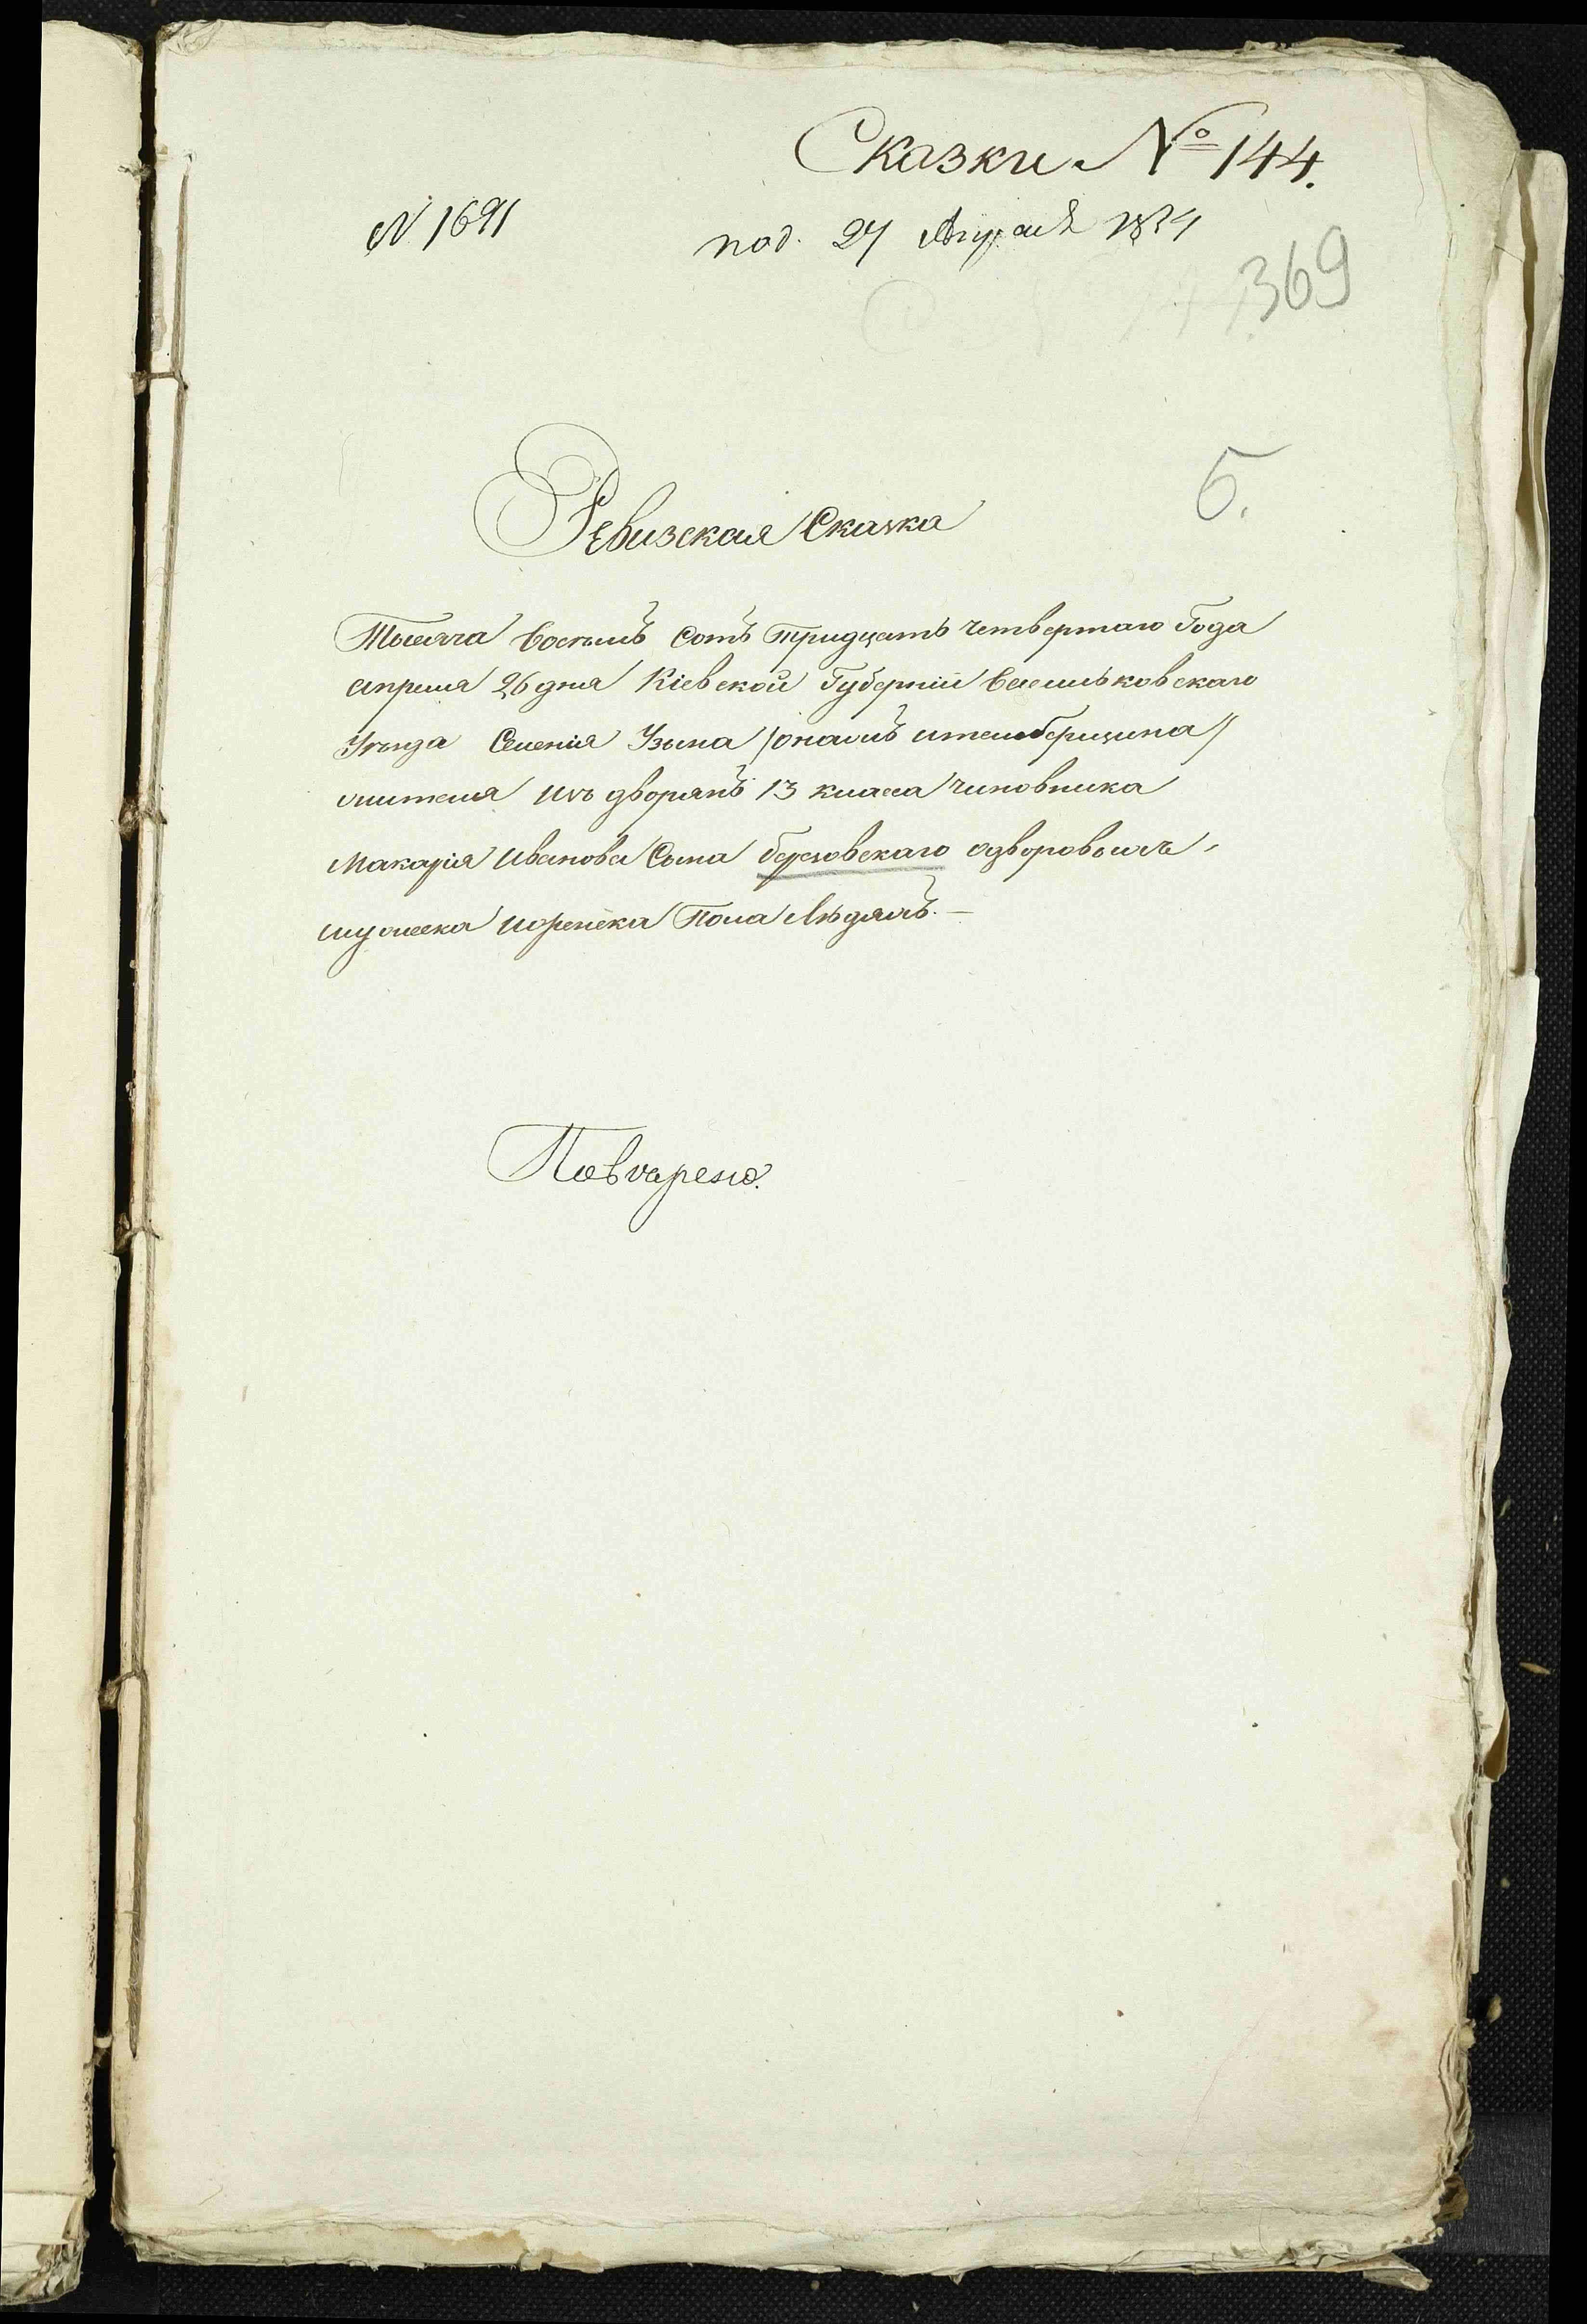 Сказки № 144.
№ 1691
под. 27 Апреля 1834
369
Б.
Ревизская Сказка
Тысяча восемъ сотъ тридцать четвертаго Года
апреля 26 дня Кіевской Губерніи васильковскаго
Уезда Селенія Узына
жителя изъ дворянъ 13 класса чиновника
Макарія Иванова Сына березовскаго одворовыхъ
мужеска иженска Пола Людяхъ. —